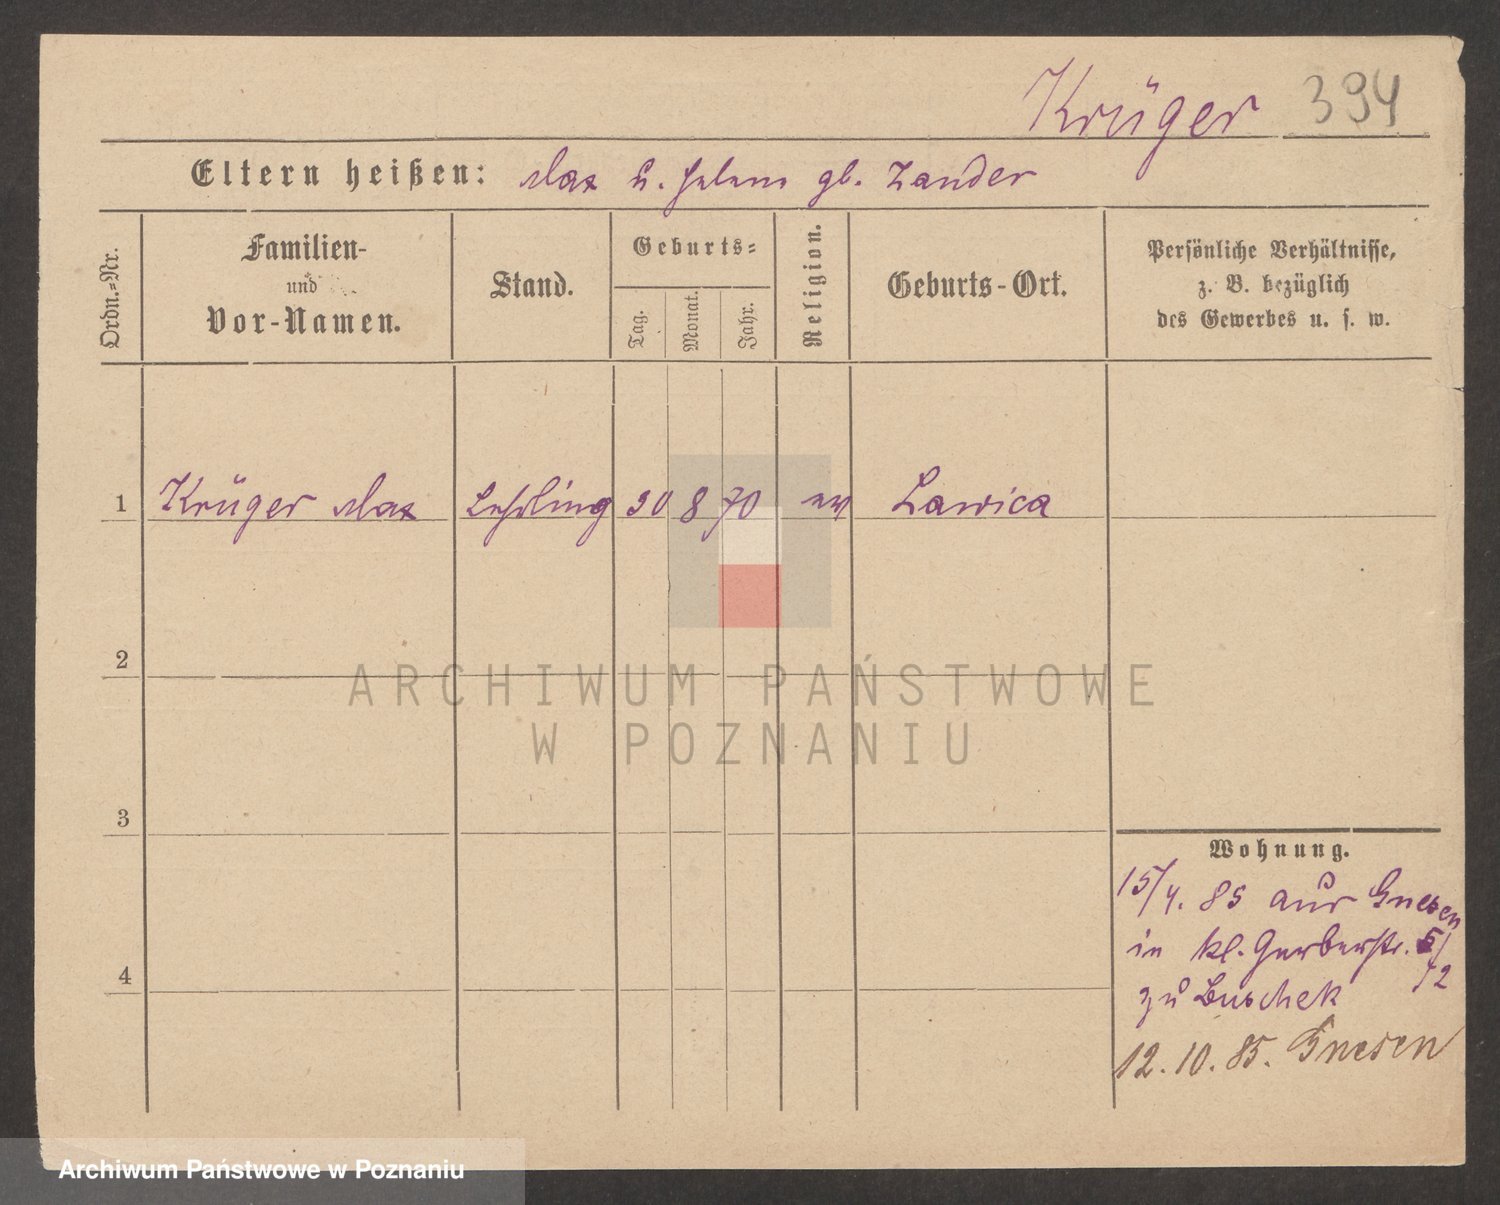 Krüger 394
Eltern heißen: Max u. Helene gb. Zander
Ordn.-Nr.
Familien-
und
Vor-Namen.
Stand.
Geburts-
Tag.
Monat.
Jahr.
Religion.
Geburts-Ort.
Persönliche Verhältnisse,
z. B. bezüglich
des Gewerbes u. s. w.
1 Krüger Max Lehrling 30 8 70 ev Lawica
2
3
4
ARCHIWUM PAŃSTWOWE
W POZNANIU
Wohnung.
15/4. 85 aus Gnesen
in kl. Gerberstr.
zu Buschek
12. 10. 85. Gnesen
Archiwum Państwowe w Poznaniu